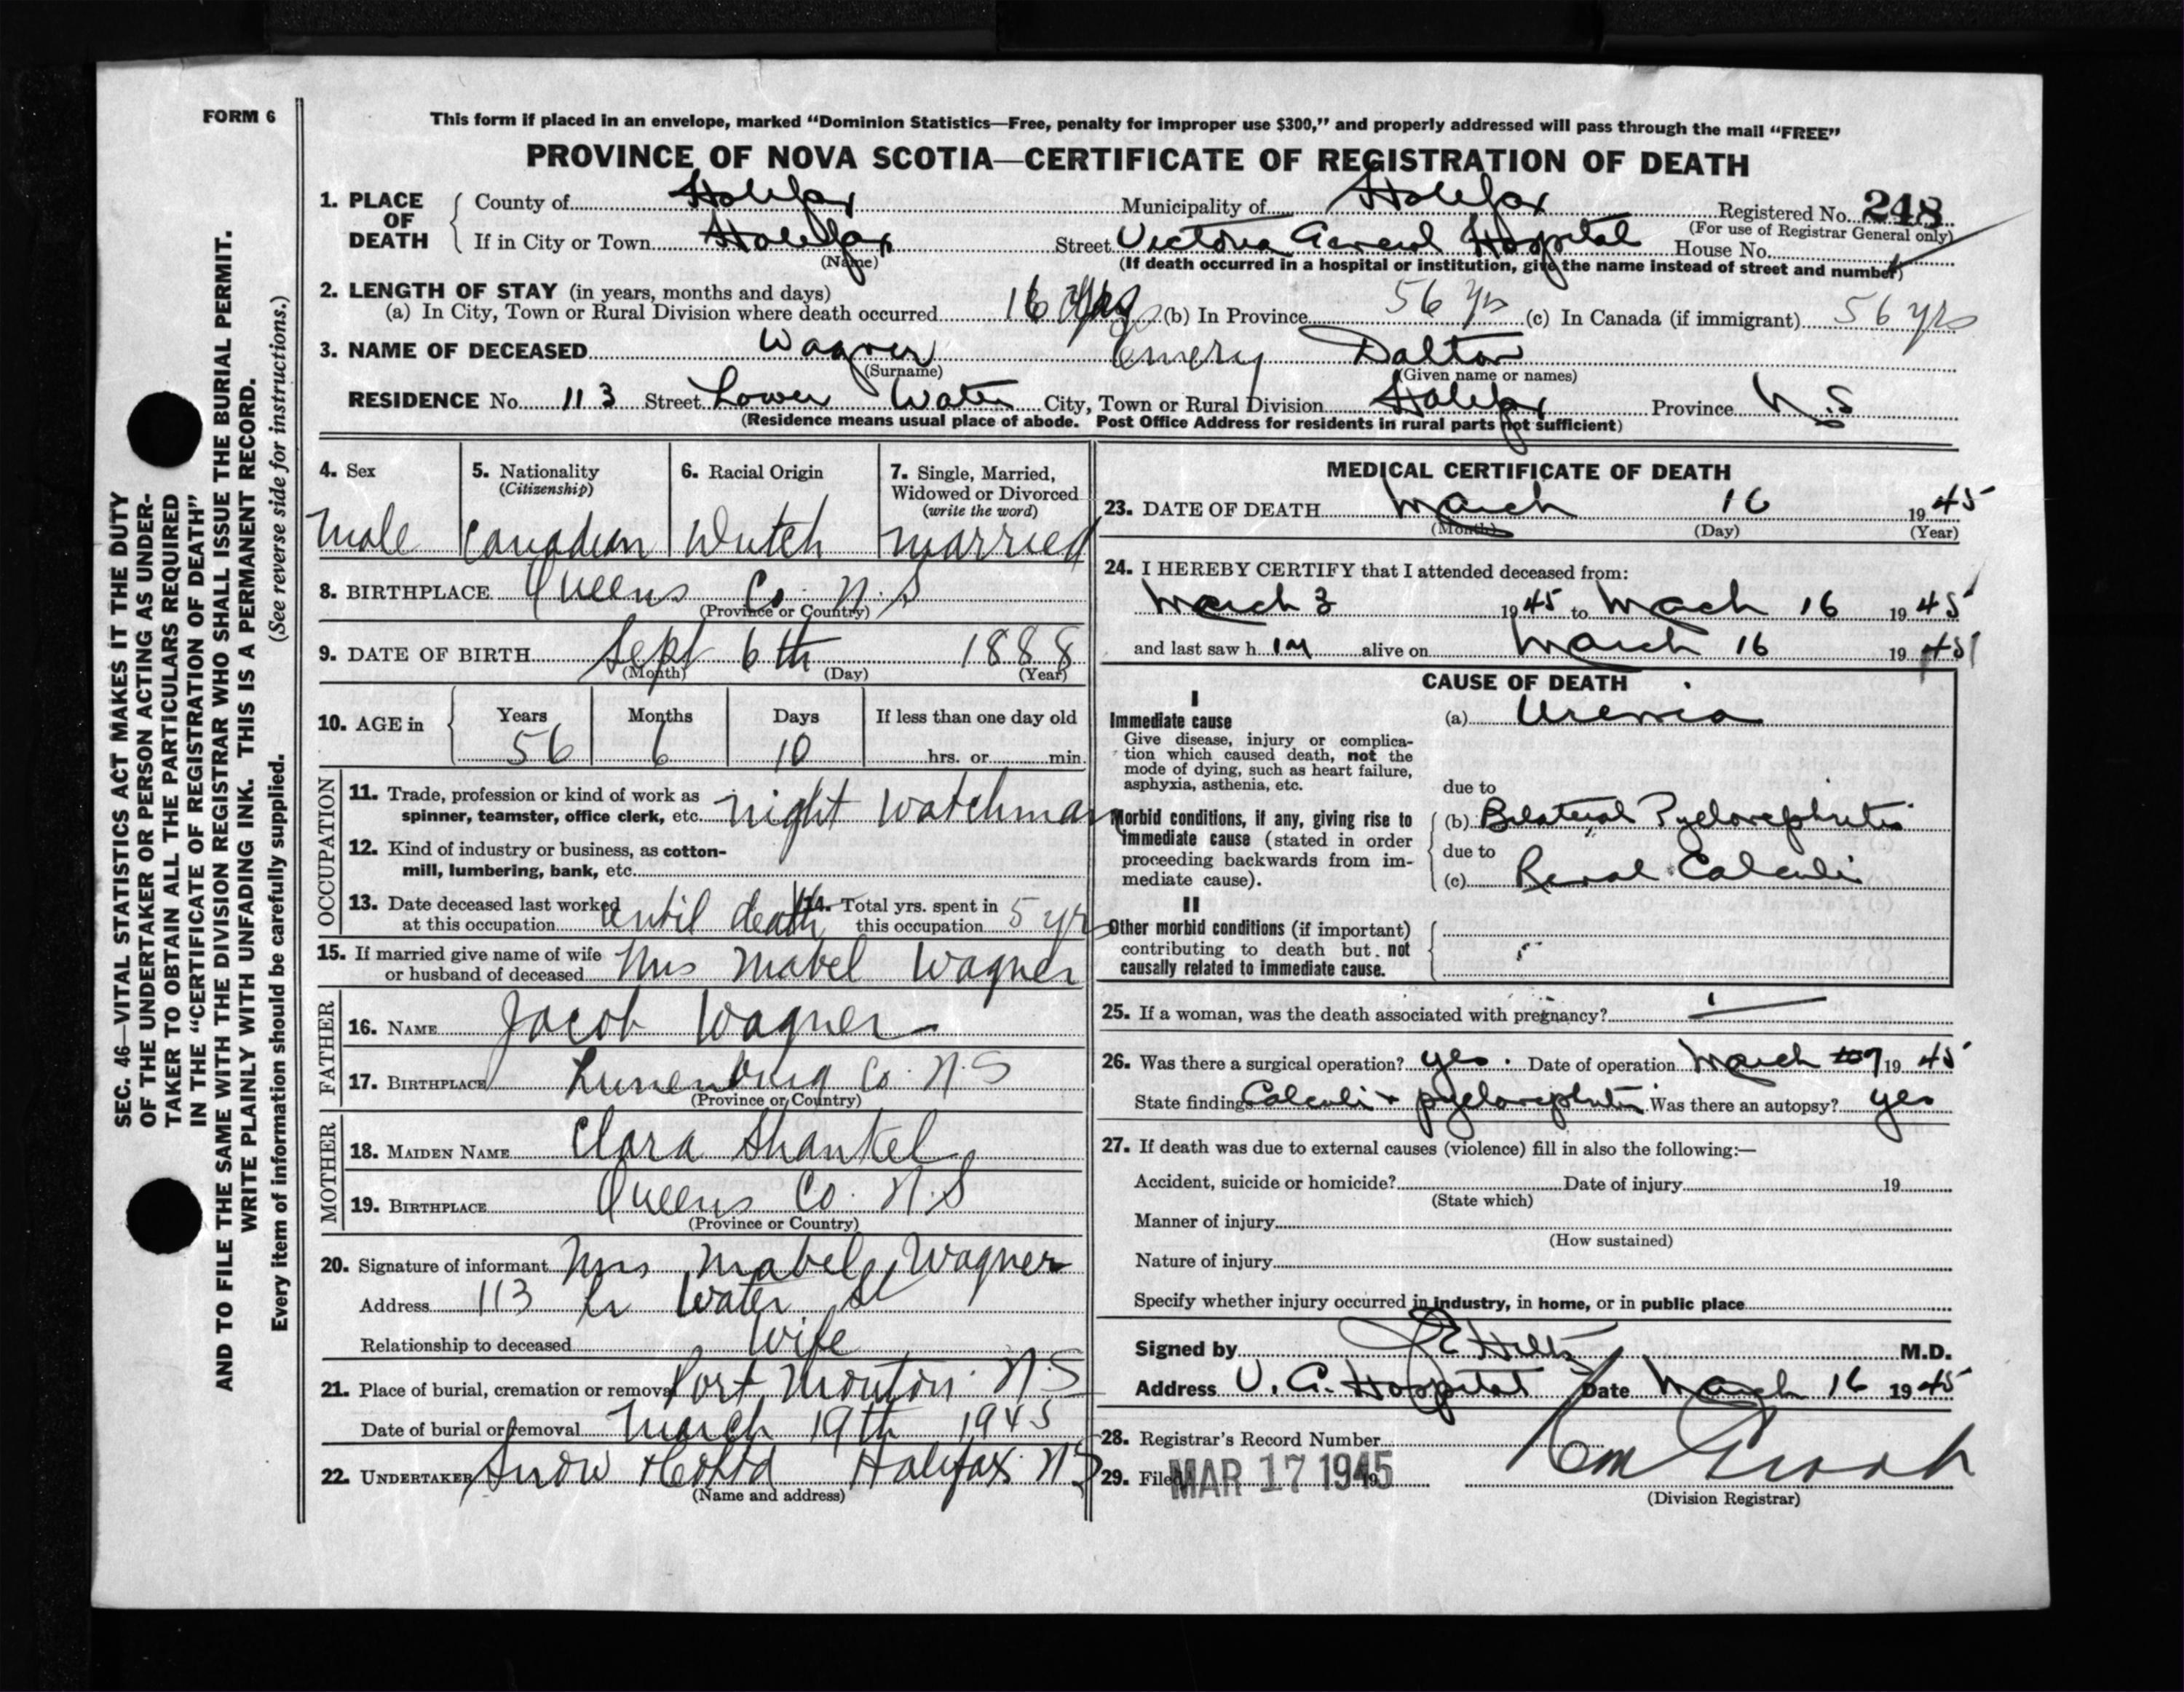 FORM 6
This form if placed in an envelope, marked “Dominion Statistics—Free, penalty for improper use $300,” and properly addressed will pass through the mail “FREE”
PROVINCE OF NOVA SCOTIA—CERTIFICATE OF REGISTRATION OF DEATH
1. PLACE OF DEATH County of Halifax Municipality of Halifax Registered No. 248
(For use of Registrar General only)
If in City or Town Halifax Street Victoria General Hospital House No.
(Name) (If death occurred in a hospital or institution, give the name instead of street and number)
2. LENGTH OF STAY (in years, months and days)
(a) In City, Town or Rural Division where death occurred 16 (b) In Province 56 yrs (c) In Canada (if immigrant) 56 yrs
3. NAME OF DECEASED Wagner Emery Dalton
(Surname) (Given name or names)
RESIDENCE No. 113 Street Lower Water City, Town or Rural Division Halifax Province N.S
(Residence means usual place of abode. Post Office Address for residents in rural parts not sufficient)
4. Sex 5. Nationality 6. Racial Origin 7. Single, Married,
(Citizenship) Widowed or Divorced
(write the word)
Male Canadian Dutch married
8. BIRTHPLACE Queens Co. N.S
(Province or Country)
9. DATE OF BIRTH Sept 6th 1888
(Month) (Day) (Year)
10. AGE in Years Months Days If less than one day old
56 6 10 hrs. or min.
OCCUPATION
11. Trade, profession or kind of work as
spinner, teamster, office clerk, etc. night watchman
12. Kind of industry or business, as cotton-
mill, lumbering, bank, etc.
13. Date deceased last worked 14. Total yrs. spent in
at this occupation until death this occupation 5 yrs
15. If married give name of wife
or husband of deceased Mrs Mabel Wagner
FATHER
16. NAME Jacob Wagner
17. BIRTHPLACE Lunenburg Co. N.S
(Province or Country)
MOTHER
18. MAIDEN NAME Clara Shankel
19. BIRTHPLACE Queens Co. N.S
(Province or Country)
20. Signature of informant Mrs Mabel Wagner
Address 113 Lr Water St
Relationship to deceased Wife
21. Place of burial, cremation or removal Port Mouton N.S
Date of burial or removal March 19th 1945
22. UNDERTAKER Snow & Co Ltd Halifax N.S
(Name and address)
MEDICAL CERTIFICATE OF DEATH
23. DATE OF DEATH March 16 1945
(Month) (Day) (Year)
24. I HEREBY CERTIFY that I attended deceased from:
March 3 1945 to March 16 1945
and last saw h im alive on March 16 1945
CAUSE OF DEATH
I
Immediate cause (a) Uremia
Give disease, injury or complica-
tion which caused death, not the
mode of dying, such as heart failure,
asphyxia, asthenia, etc.
due to
Morbid conditions, if any, giving rise to (b) Bilateral Pyelonephritis
immediate cause (stated in order due to
proceeding backwards from im-
mediate cause). (c) Renal Calculi
II
Other morbid conditions (if important)
contributing to death but not
causally related to immediate cause.
25. If a woman, was the death associated with pregnancy?
26. Was there a surgical operation? yes. Date of operation March 9 1945
State findings Calculi + pyelonephritis Was there an autopsy? yes
27. If death was due to external causes (violence) fill in also the following:—
Accident, suicide or homicide? Date of injury 19
(State which)
Manner of injury
(How sustained)
Nature of injury
Specify whether injury occurred in industry, in home, or in public place
Signed by M.D.
Address V.G. Hospital Date March 16 1945
28. Registrar's Record Number
29. Filed MAR 17 1945 19
(Division Registrar)
SEC. 46—VITAL STATISTICS ACT MAKES IT THE DUTY
OF THE UNDERTAKER OR PERSON ACTING AS UNDER-
TAKER TO OBTAIN ALL THE PARTICULARS REQUIRED
IN THE “CERTIFICATE OF REGISTRATION OF DEATH”
AND TO FILE THE SAME WITH THE DIVISION REGISTRAR WHO SHALL ISSUE THE BURIAL PERMIT.
WRITE PLAINLY WITH UNFADING INK. THIS IS A PERMANENT RECORD.
Every item of information should be carefully supplied. (See reverse side for instructions.)